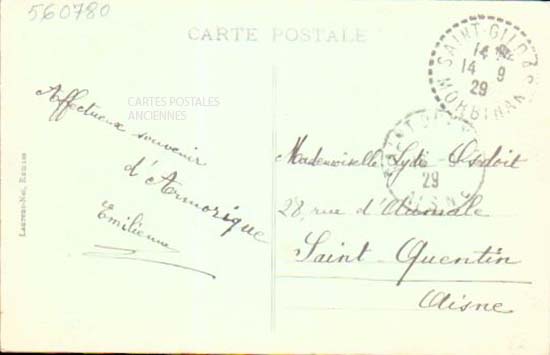 560780
CARTE POSTALE
SAINT-GILDAS
14 9
29
MORBIHAN
CARTES POSTALES
ANCIENNES
Affectueux souvenir
d'Armorique
Emilienne
Mademoiselle Lydie
28, rue d'Aumale
Saint-Quentin
Aisne
29
AISNE